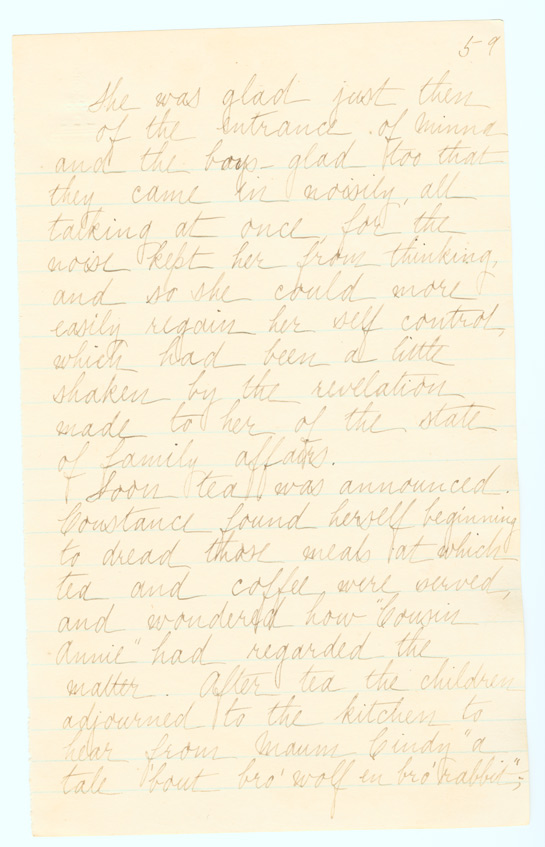 59
She was glad just then
of the entrance of Minna
and the boys - glad too that
they came in noisily, all
talking at once, for the
noise kept her from thinking,
and so she could more
easily regain her self control,
which had been a little
shaken by the revelation
made to her of the state
of family affairs.
Soon tea was announced.
Constance found herself beginning
to dread those meals at which
tea and coffee were served,
and wondered how "Cousin
Annie" had regarded the
matter. After tea the children
adjourned to the kitchen to
hear from Maum Cindy "a
tale 'bout bro' wolf en bro' rabbit";